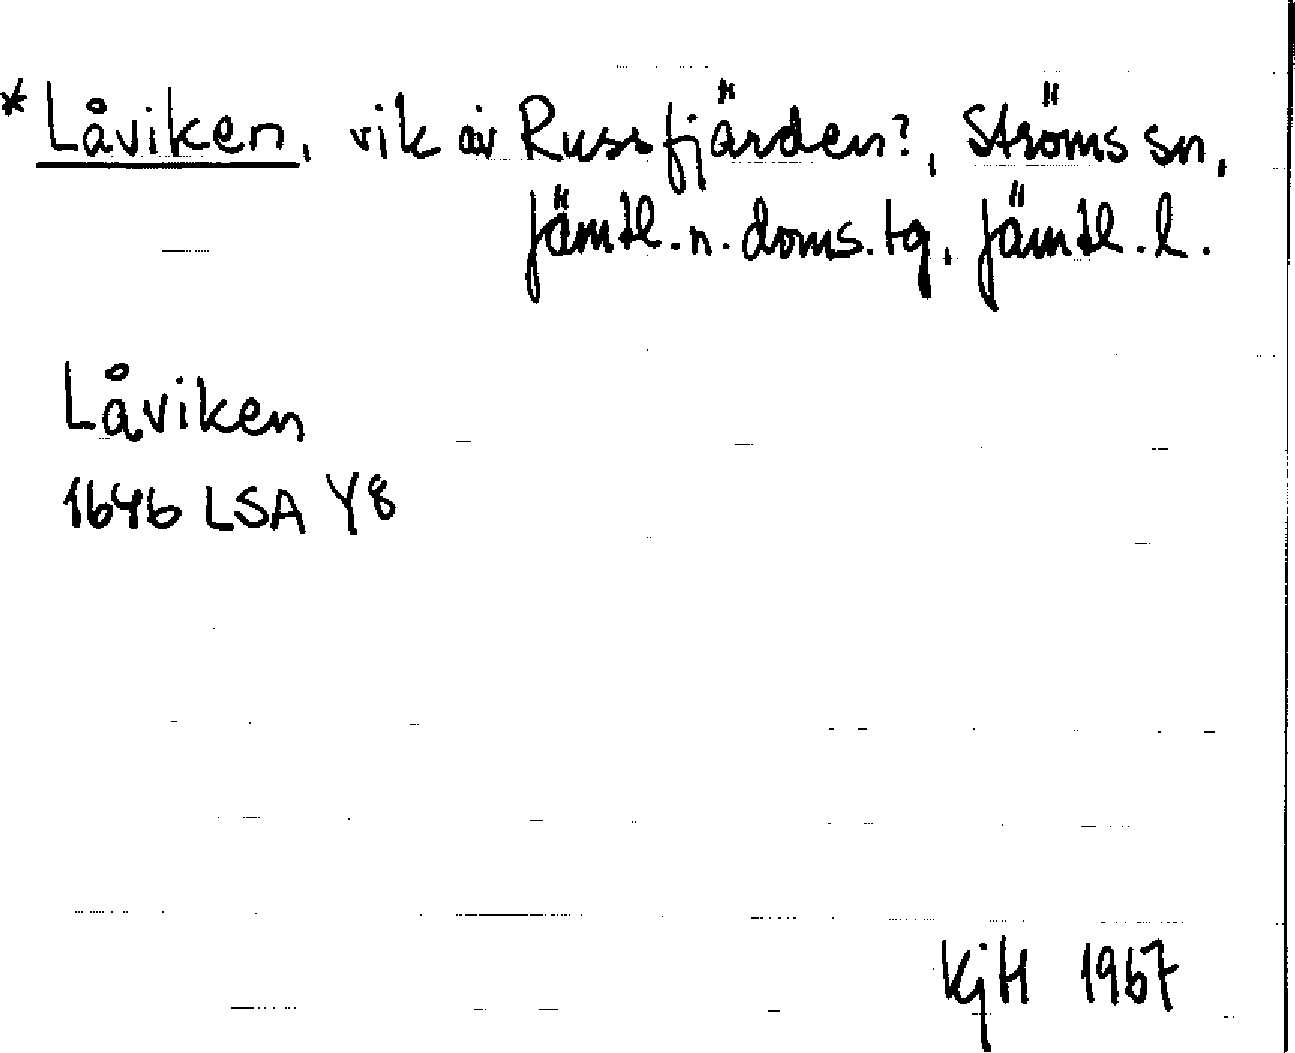 * Låviken, vik av Russfjärden?, Ströms sn,
Jämtl. n. doms. tg, Jämtl. l.
Låviken
1646 LSA Y8
KjH 1967